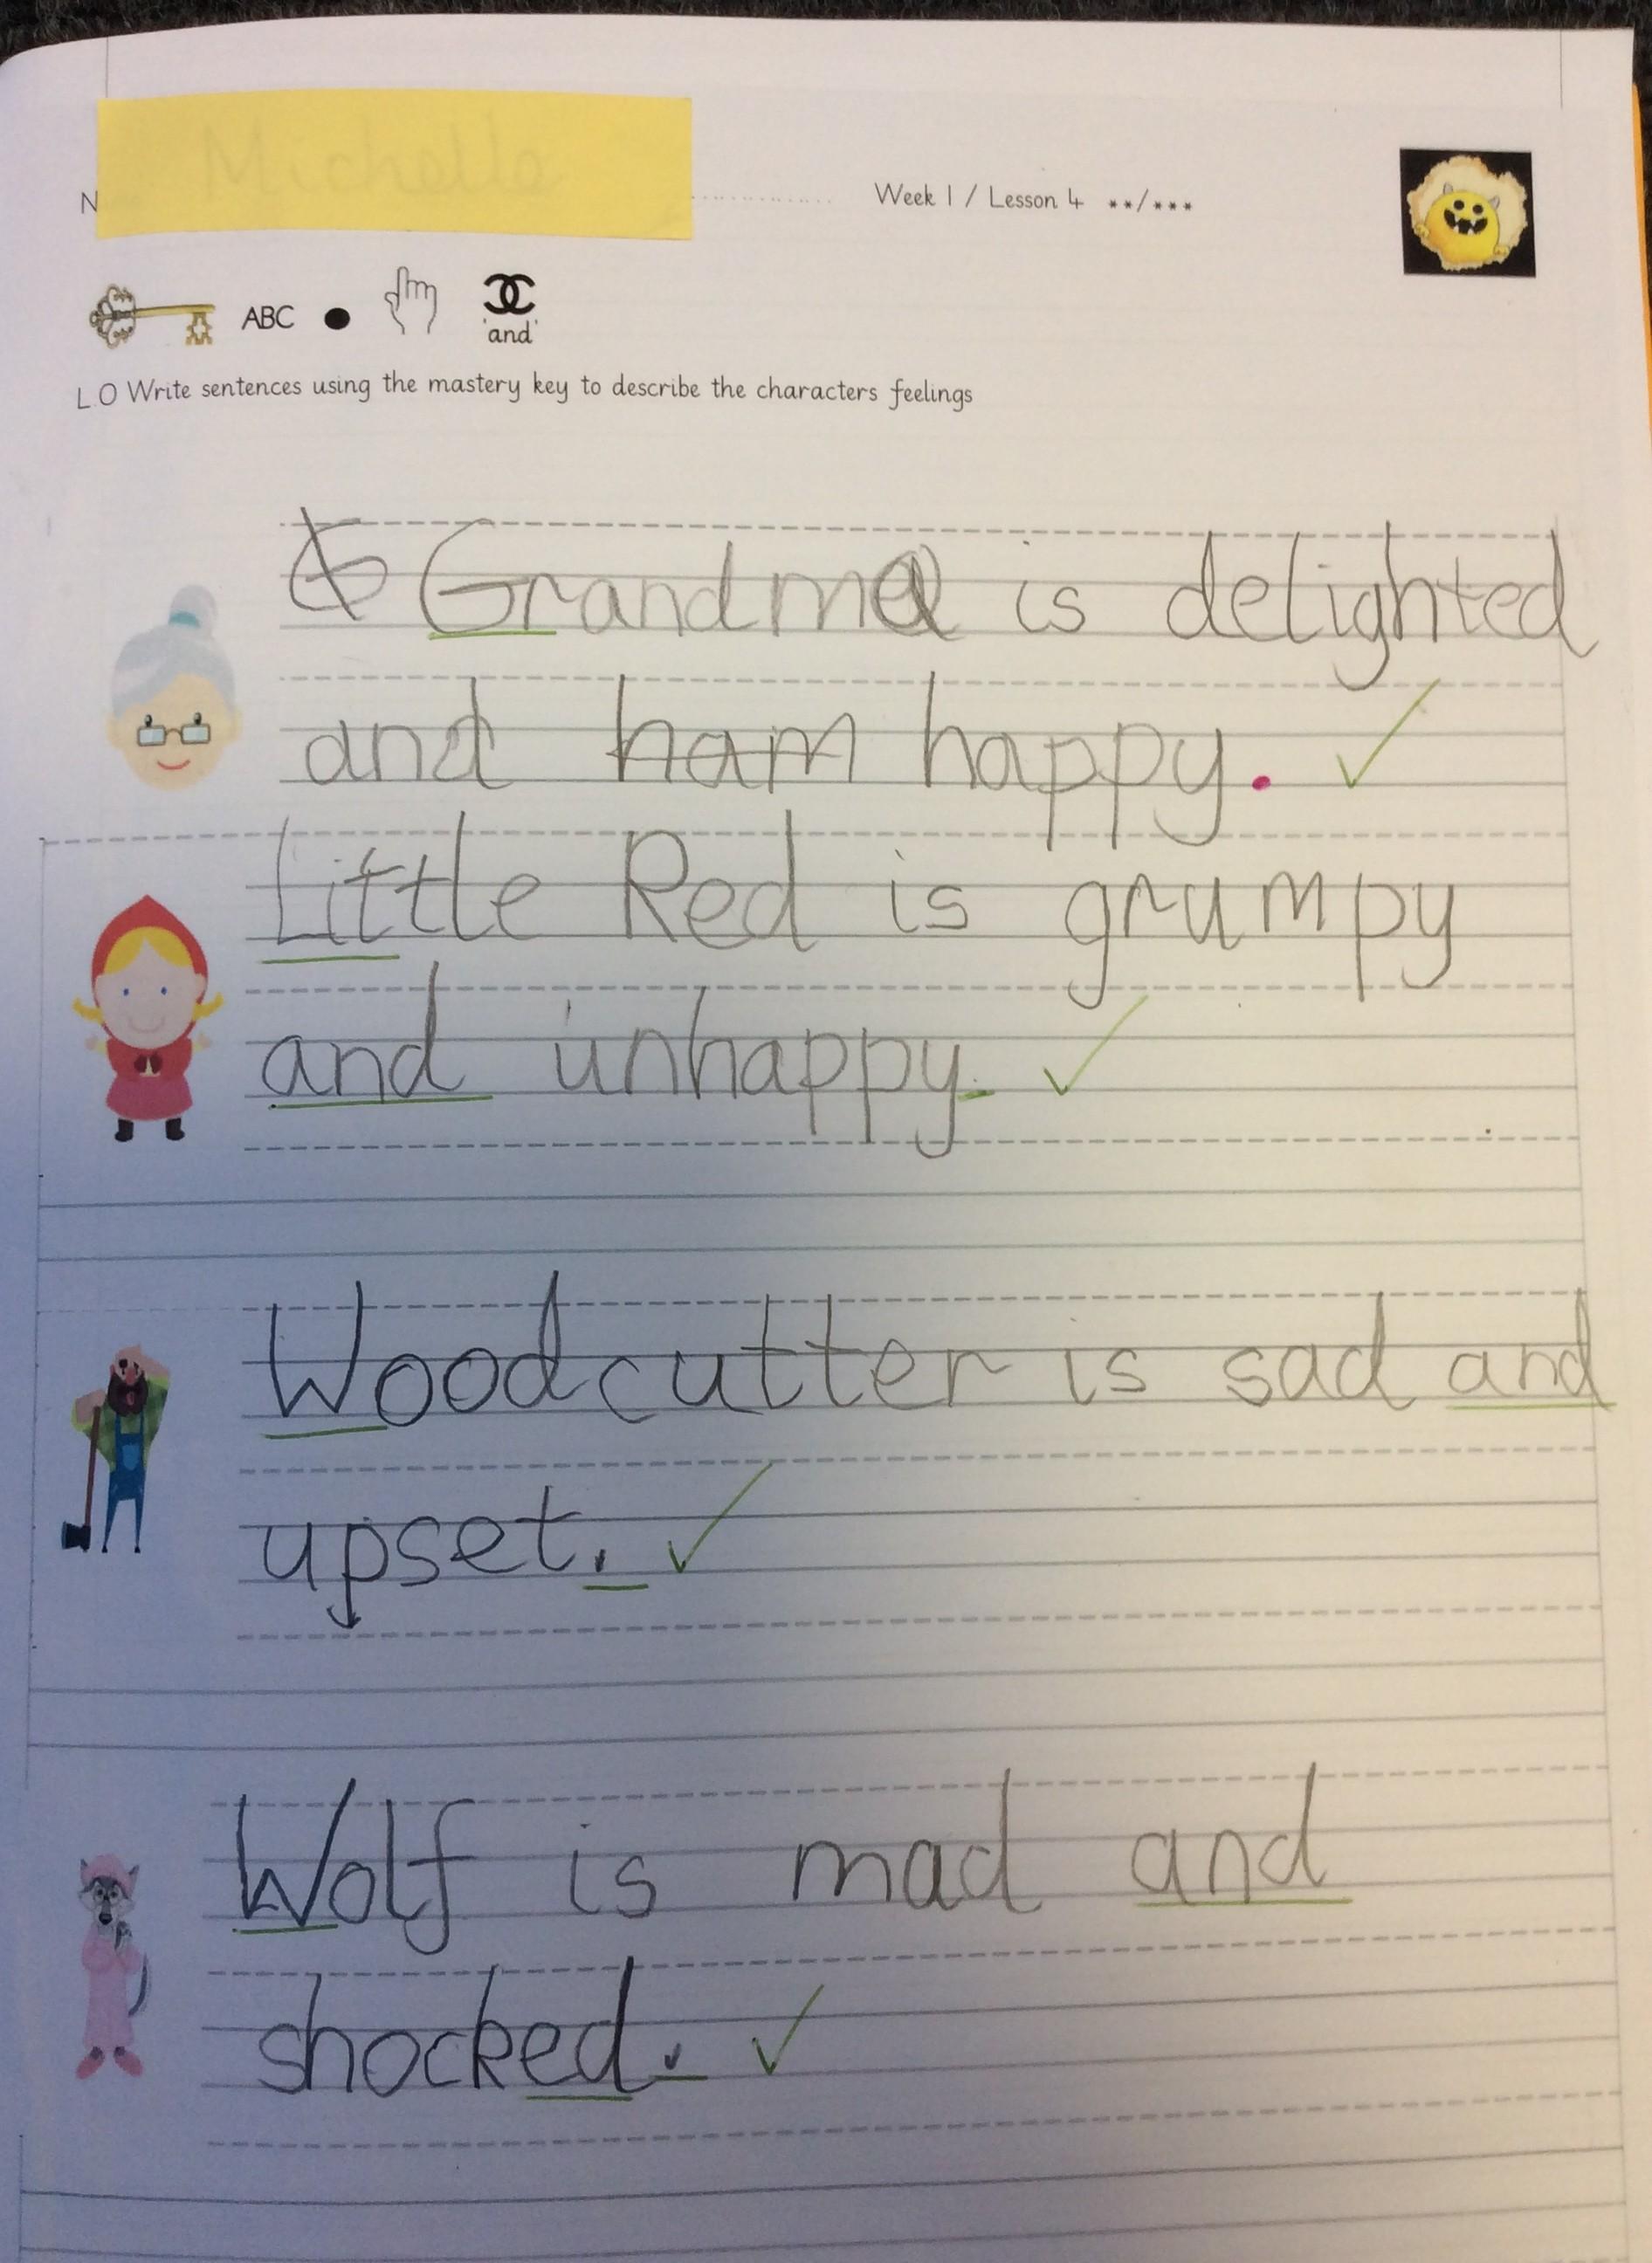 Michelle
N
Week 1 / Lesson 4 **/***
ABC
'and'
L.O Write sentences using the mastery key to describe the characters feelings
G Grandma is delighted
and ham happy.
Little Red is grumpy
and unhappy.
Woodcutter is sad and
upset.
Wolf is mad and
shocked.